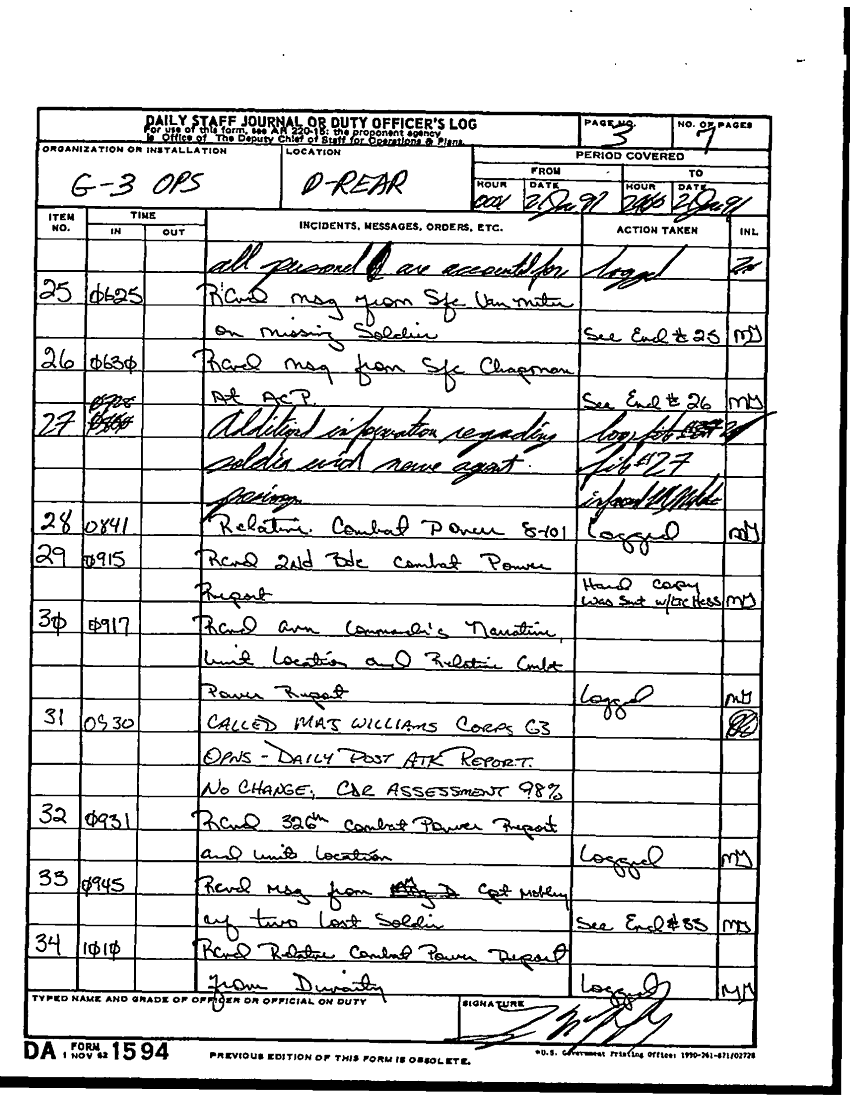 DAILY STAFF JOURNAL OR DUTY OFFICER'S LOG
For use of this form, see AR 220-15; the proponent agency
is Office of The Deputy Chief of Staff for Operations & Plans.
PAGE NO.
3
NO. OF PAGES
7
ORGANIZATION OR INSTALLATION
G-3 OPS
LOCATION
D-REAR
PERIOD COVERED
FROM
TO
HOUR
0001
DATE
21 Jan 91
HOUR
2400
DATE
21 Jan 91
ITEM NO.
TIME
IN
OUT
INCIDENTS, MESSAGES, ORDERS, ETC.
ACTION TAKEN
INL
all personel are accounted for logged
25 0625 Rcvd msg from Sfc Van meter
on missing Soldier See Encl # 25 MJ
26 0630 Rcvd msg from Sfc Chapman
At ACP. See Encl # 26 MJ
27 Additional information regarding
soldier with nerve agent #27
28 0841 Relative Combat Power 8-101 Logged MJ
29 0915 Rcvd 2nd Bde Combat Power
Report Hard copy was sent w/LTC Hess MJ
30 0917 Rcvd avn Commander's Narrative,
Unit Location and Relative Cmbt
Power Report Logged MJ
31 0930 CALLED MAJ WILLIAMS CORPS G3
OPNS - DAILY POST ATK REPORT.
NO CHANGE, CDR ASSESSMENT 98%
32 0931 Rcvd 326th Combat Power Report
and unit Location Logged MJ
33 0945 Rcvd msg from Cpt
of two Lost Soldier See Encl # 33 MJ
34 1010 Rcvd Relative Combat Power Report
from Divarty Logged
TYPED NAME AND GRADE OF OFFICER OR OFFICIAL ON DUTY
SIGNATURE
DA FORM 1594
1 NOV 62
PREVIOUS EDITION OF THIS FORM IS OBSOLETE.
*U.S. Government Printing Office: 1990-261-871/02728